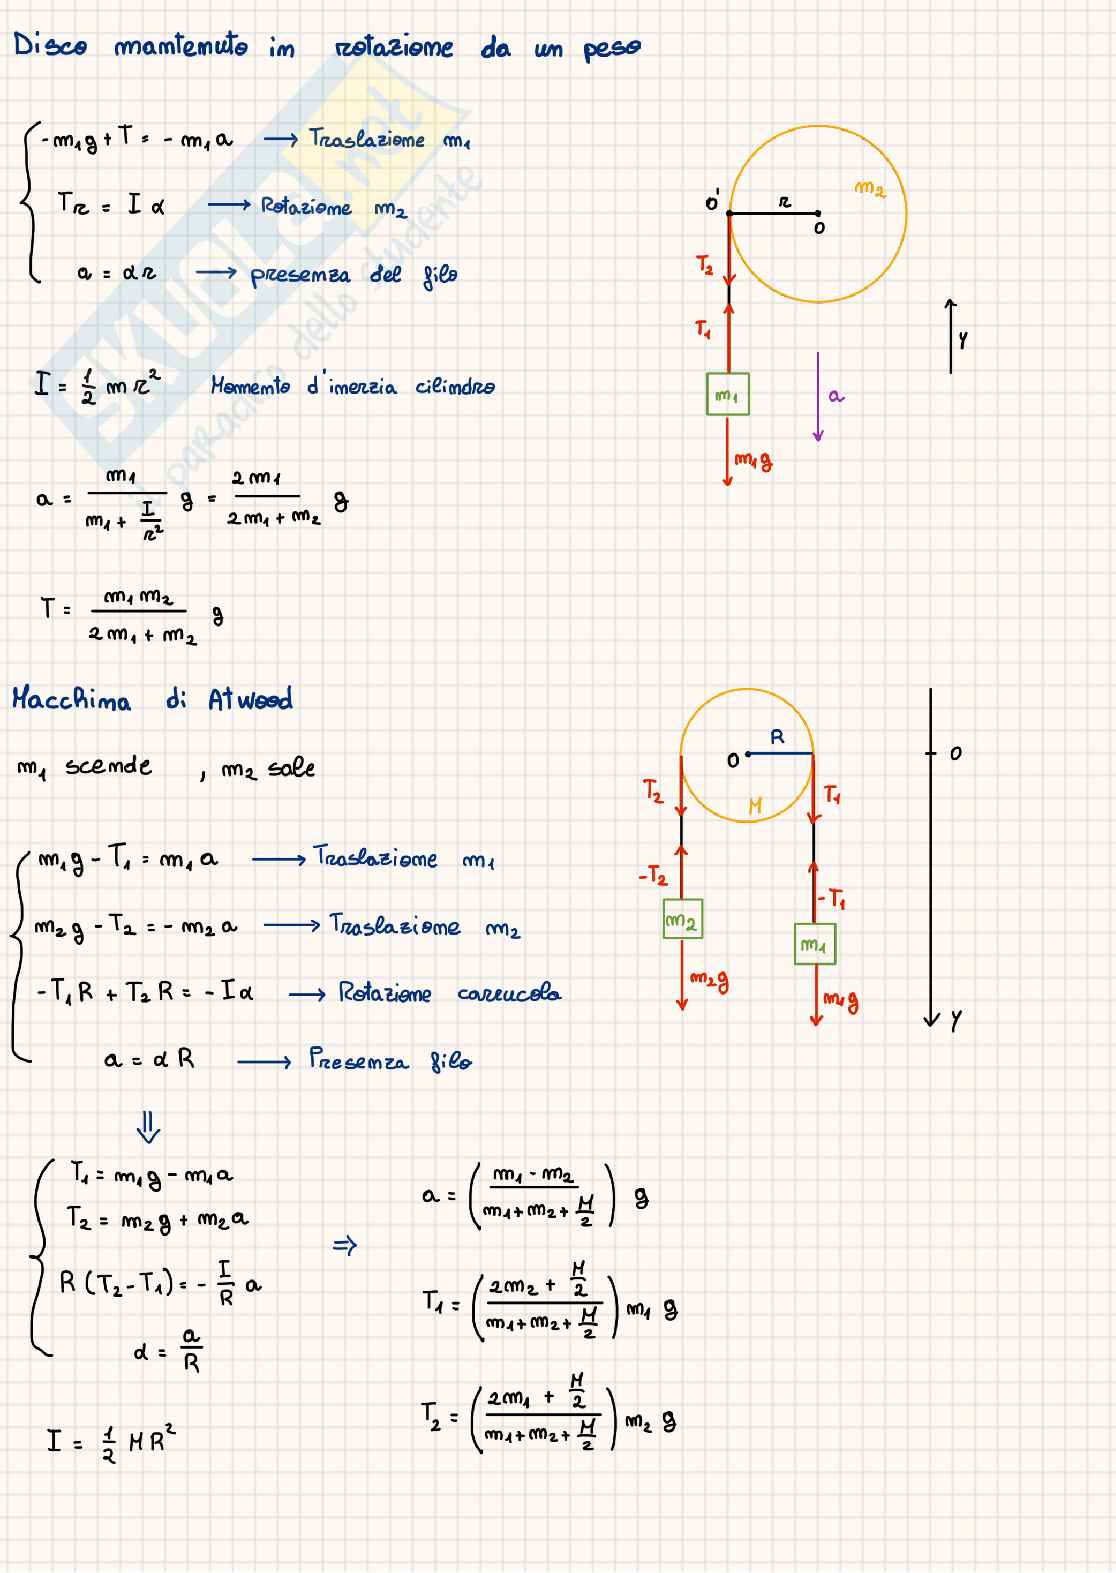 Disco mantenuto in rotazione da un peso
-m₁g + T = - m₁a → Traslazione m₁
Tr = I α → Rotazione m₂
a = αr → presenza del filo
I = 1/2 m r² Momento d'inerzia cilindro
a = m₁ / (m₁ + I/r²) g = 2m₁ / (2m₁ + m₂) g
T = m₁ m₂ / (2m₁ + m₂) g
O' r O m₂
T₂
T₁
m₁
m₁g
a
y
Macchina di Atwood
m₁ scende , m₂ sale
m₁g - T₁ = m₁a → Traslazione m₁
m₂g - T₂ = - m₂a → Traslazione m₂
-T₁R + T₂R = - Iα → Rotazione carrucola
a = αR → Presenza filo
⇓
T₁ = m₁g - m₁a
T₂ = m₂g + m₂a
R (T₂ - T₁) = - I/R a
α = a/R
I = 1/2 M R²
⇒
a = ( (m₁ - m₂) / (m₁ + m₂ + M/2) ) g
T₁ = ( (2m₂ + M/2) / (m₁ + m₂ + M/2) ) m₁ g
T₂ = ( (2m₁ + M/2) / (m₁ + m₂ + M/2) ) m₂ g
O R
M
T₂ T₁
-T₂ -T₁
m₂ m₁
m₂g m₁g
0
y
SKUOLA.net
paradiso dello studente